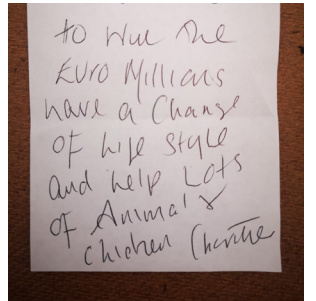 to win the
Euro Millions
have a Change
of Life Style
and help Lots
of Animal &
Children Charitie